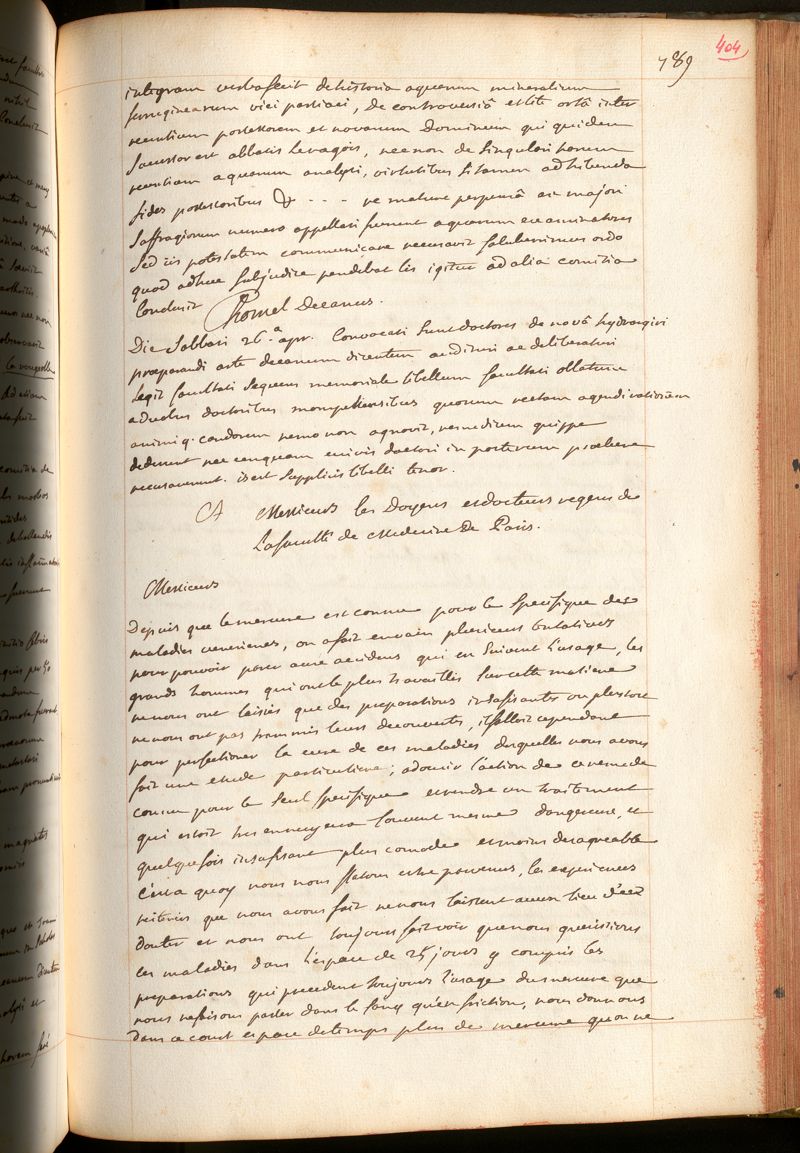 404
789
integram verba fecit de historia aquarum mineralium
ferruginearum vici passiaci, de controversiâ et lite ortâ inter
recentium possessorem et novarum Dominum qui quidem
successor est abbatis Leragois, nec non de singulari horum
recentium aquarum analysi, virtutibus si tamen adhibenda
fides possessoribus & - - - re mature perpensâ ac majori
suffragiorum numero appellari fuerunt aquarum examinatores
sed iis potestatem communicare recusavit saluberrimus ordo
quod adhuc sub judice pendebat lis igitur ad alia comitia
Conclusit Chomel Decanus.
Die Sabbati 26.a apr. Convocati sunt doctores de novâ hydrargiri
præparandi arte decanum dicentem audituri ac deliberaturi
legit facultati sequens memoriale libellum facultati oblatum
a duobus doctoribus monspeliensibus quorum rectam agendi rationem
animiq. candorem nemo non agnovit, remedium quippe
dederunt nec unquam cuivis doctori in posterum præbere
recusaverunt. is est supplicis libelli tenor.
A Messieurs les Doyens et docteurs regens de
La faculté de Medecine De Paris.
Messieurs
Depuis que le mercure est connu pour le specifique des
maladies veneriennes, on a fait en vain plusieurs tentatives
pour pouvoir parer aux accidens qui en suivent l'usage, les
grands hommes qui ont le plus travaillés sur cette matiere
ne nous ont laissés que des preparations insufisantes ou plustost
ne nous ont pas transmis leurs decouvertes, il falloit cependant
pour perfectioner la cure de ces maladies desquelles nous avons
fait une etude particuliere; adoucir l'action de ce remede
connu pour le seul specifique et rendre un traitement
qui estoit tres ennuyeux souvent mesme dangereux, et
quelquefois insufisant plus comode et moins desagreable
c'est a quoy nous nous flatons estre parvenus, les experiences
reiterées que nous avons fait ne nous laissent aucun lieu d'en
douter et nous ont toujours fait voir que nous guerissions
ces maladies dans l'espace de 25 jours y compris les
preparations qui precedent toujours l'usage du mercure que
nous ne faisons passer dans le sang qu'en friction, nous donnons
dans ce court espace de temps plus de mercure qu'on ne